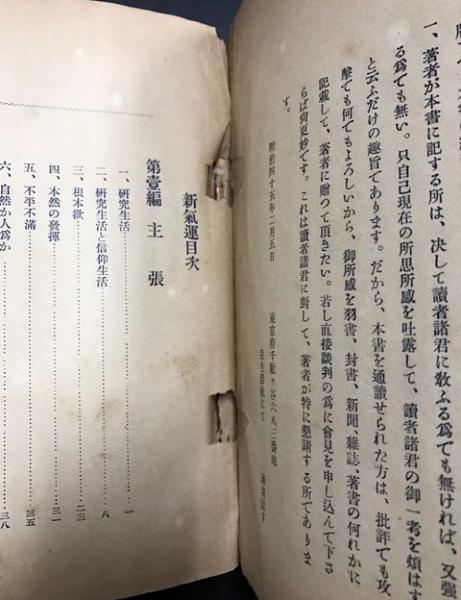 一、著者が本書に記する所は、決して讀者諸君に敎ふる爲でも無ければ、又强
る爲ても無い。只自己現在の所思所感を吐露して、讀者諸君の御一考を煩はす
と云ふだけの趣旨であります。だから、本書を通讀せられた方は、批評でも攻
擊ても何てもよろしいから、御所感を羽書、封書、新聞、雜誌、著書の何れかに
記載して、著者に贈つて頂きたい。若し直接談判の爲に會見を申し込んで下さ
らば尙更妙てす。これは讀者諸君に對して、著者が特に懇請する所でありま
す。
明治四十五年二月五日
東京府千駄ケ谷六八三番地
にて
著者
新氣運目次
第壹編 主張
一、硏究生活……一
二、硏究生活と信仰生活……八
三、根本欲……二三
四、本然の發揮……三一
五、不平不滿……三五
六、自然か人爲か……三八